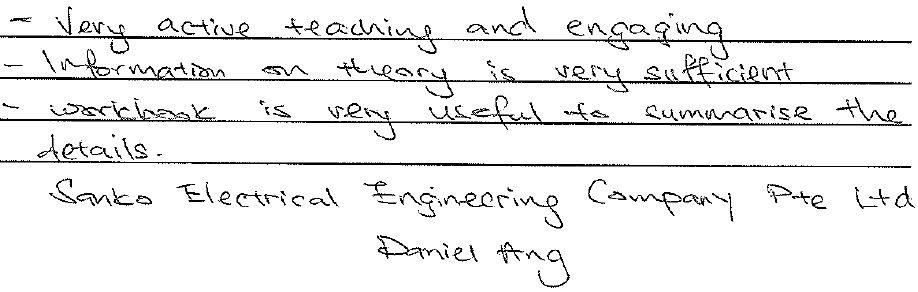 - Very active teaching and engaging
- Information on theory is very sufficient
- workbook is very useful to summarise the
details.
Sanko Electrical Engineering Company Pte Ltd
Daniel Ang